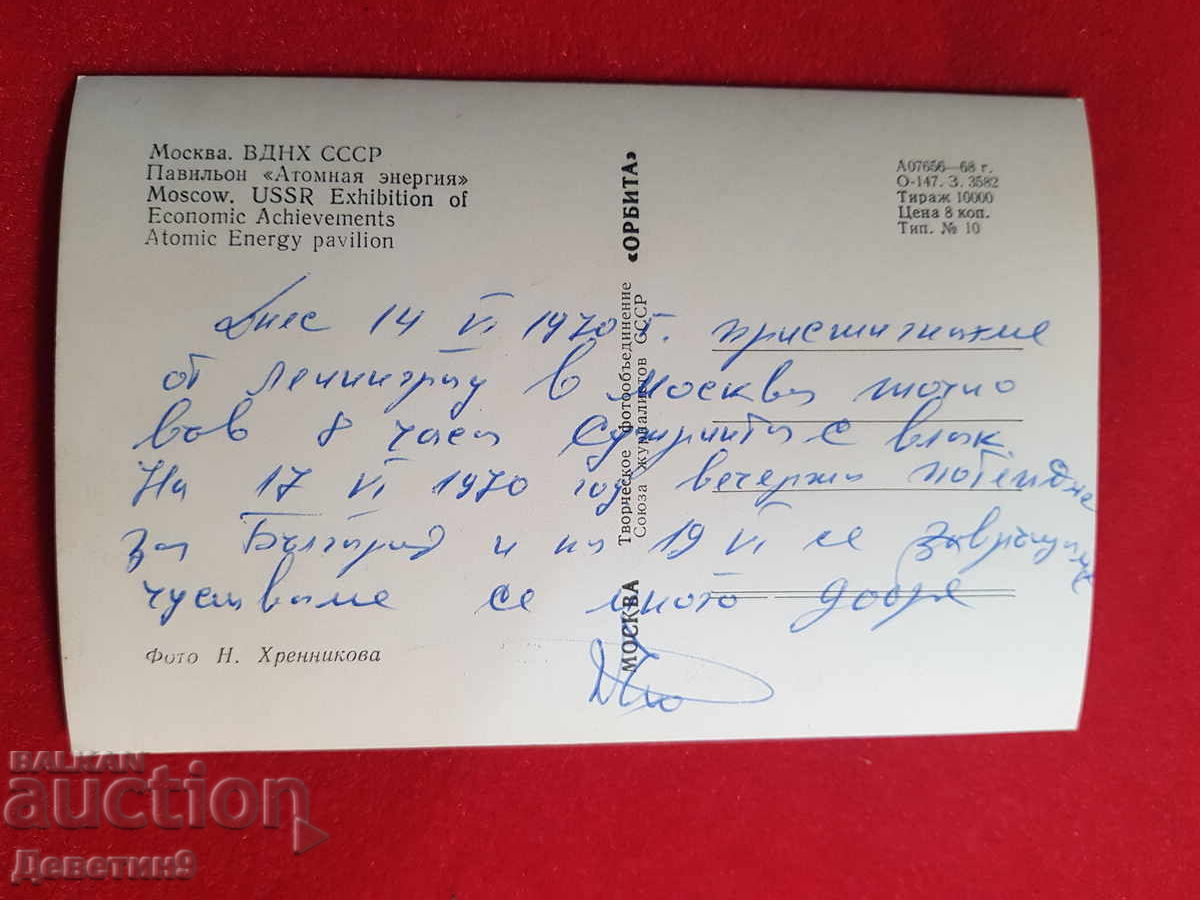 Москва. ВДНХ СССР
Павильон «Атомная энергия»
Moscow. USSR Exhibition of
Economic Achievements
Atomic Energy pavilion
А07656—68 г.
О-147. З. 3582
Тираж 10000
Цена 8 коп.
Тип. № 10
МОСКВА Творческое фотообъединение «ОРБИТА»
Союза журналистов СССР
Днес 14 VI 1970 г. пристигнахме
от Ленинград в Москва точно
вов 8 часа сутринта с влак
На 17 VI 1970 год вечерта потегляме
за Белград и на 19 VI се завръщаме
чустваме се много добре
Фото Н. Хренникова
BALKAN
auction
Деветин9